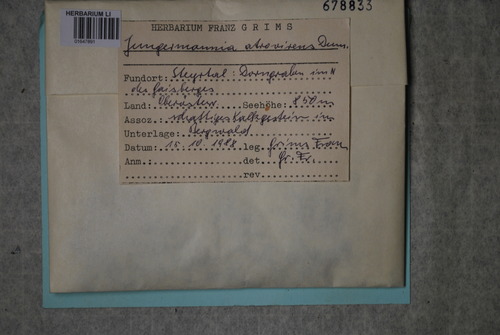 678833
HERBARIUM LI
HERBARIUM FRANZ GRIMS
Jungermannia atrovirens Dum.
Fundort: Steyrtal: Dorngraben im N
des Gaisberges
Land: Oberösterr. Seehöhe: 850 m
Assoz. schattiges Kalkgestein im
Unterlage: Bergwald
Datum: 15.10.1988 leg. Grims Franz
Anm.: det. Gr. Fr.
rev.